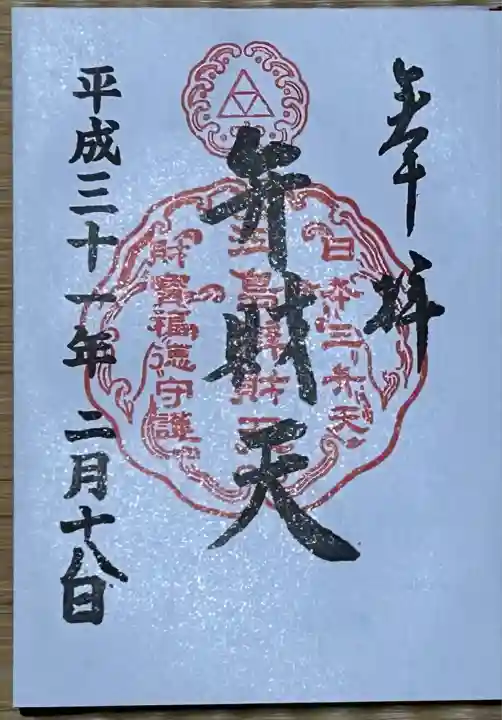 奉拝
日本三弁天
弁財天
財寳福徳守護
平成三十一年 二月十八日